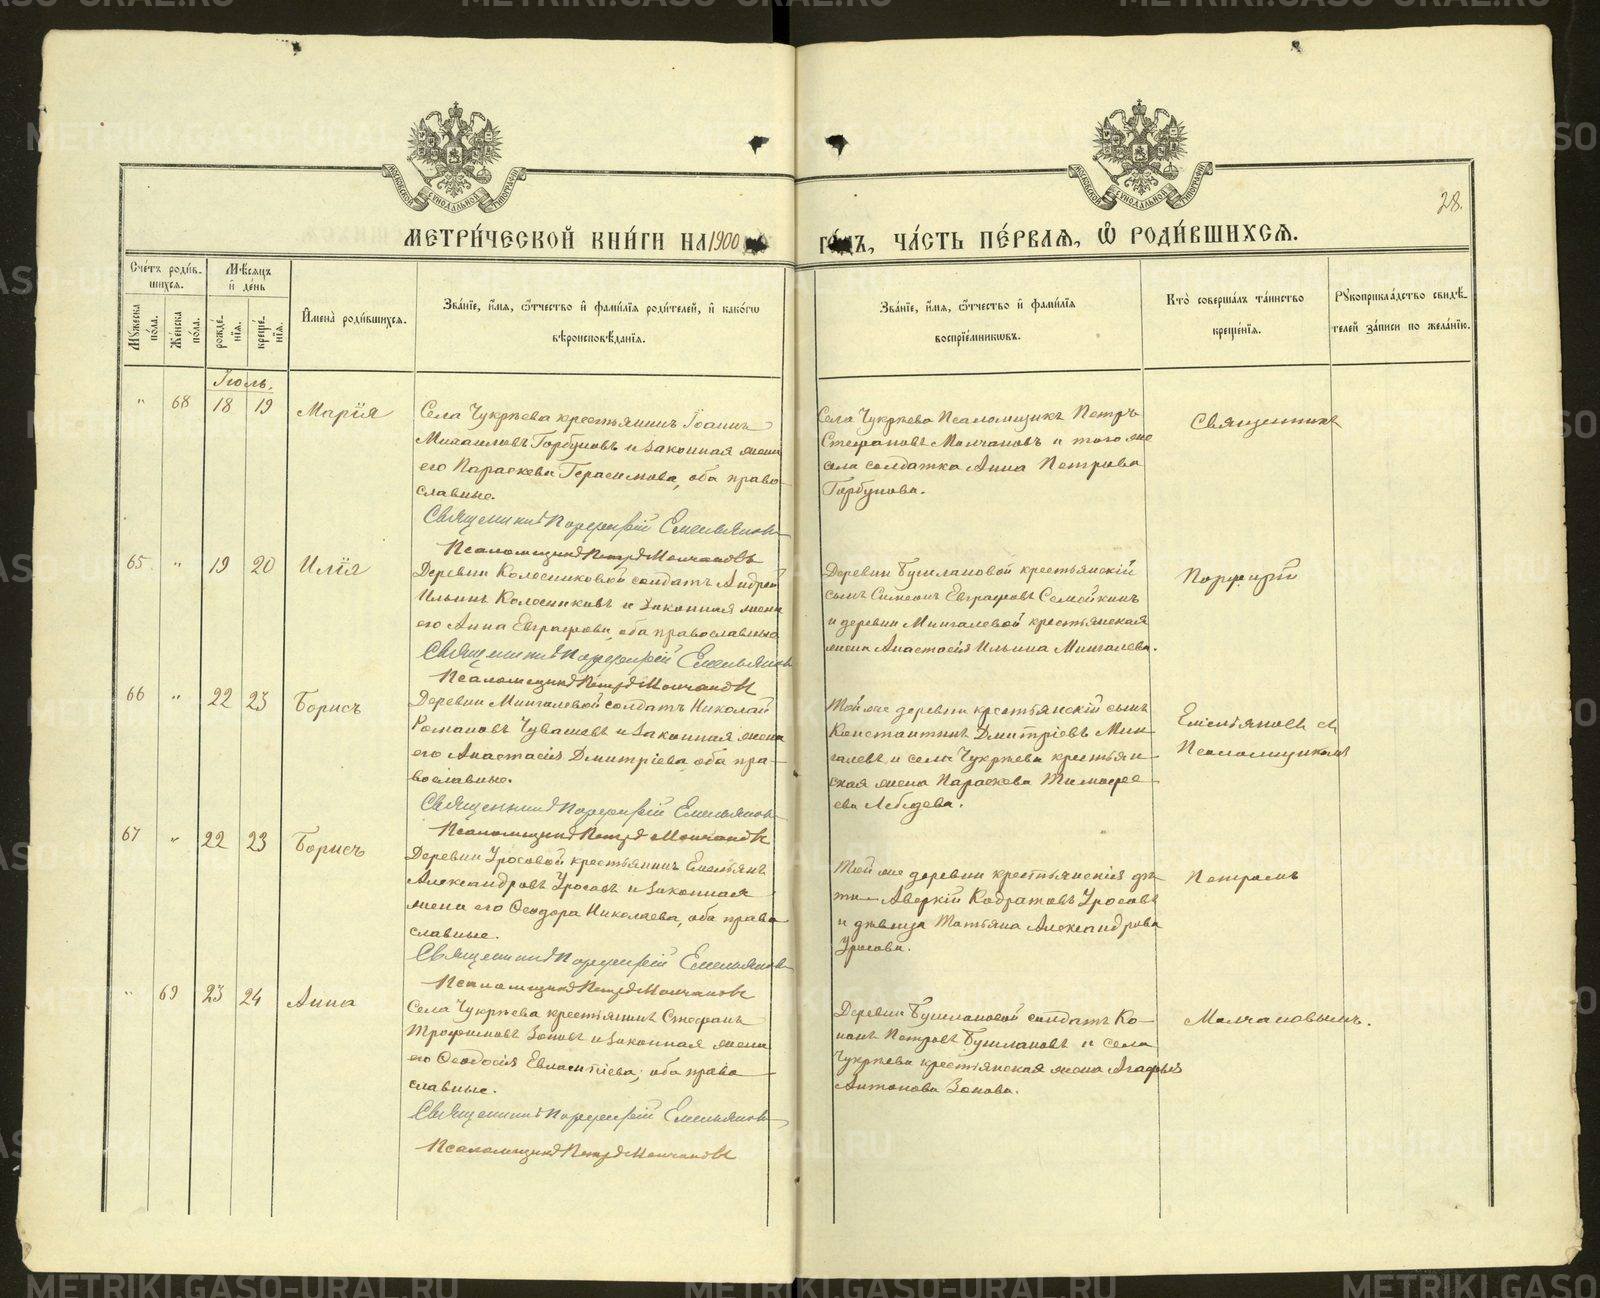 МЕТРИ́ЧЕСКОЙ КНИ́ГИ НА 1900
ГО́ДЪ, ЧА́СТЬ ПЕ́РВАЯ, Ѡ РОДИ́ВШИХСЯ.
28.
Сче́тъ роди́в-
шихся.
Мꙋ́жеска по́ла.
Же́нска по́ла.
Мѣ́сяцъ и́ де́нь
рожде́нїя.
креще́нїя.
И҆мена̀ роди́вшихся.
Зва́нїе, и҆́мя, ѻ҆́тчество и҆ фами́лїя роди́телей, и҆ како́гѡ
вѣроисповѣ́данїя.
Зва́нїе, и҆́мя, ѻ҆́тчество и҆ фами́лїя
воспрїе́мникѡвъ.
Кто̀ соверша́лъ та́инство
креще́нїя.
Рꙋкоприкла́дство свидѣ́-
телей за́писи по жела́нїю.
Іюль.
" 68 18 19 Марія
Села Чукрѣева крестьянинъ Іоаннъ
Михаиловъ Горбуновъ и законная жена
его Параскева Герасимова, оба право-
славные.
Священникъ Порфирій Емельяновъ
Псаломщикъ Петръ Молчановъ
Села Чукрѣева Псаломщикъ Петръ
Стефановъ Молчановъ и того же
села солдатка Анна Петрова
Горбунова.
Священникъ
65 " 19 20 Илія
Деревни Колесниковой солдатъ Андрей
Ильинъ Колесниковъ и законная жена
его Анна Евграфова, оба православные
Священникъ Порфирій Емельяновъ
Псаломщикъ Петръ Молчановъ
Деревни Бушлановой крестьянскій
сынъ Симеонъ Евграфовъ Семейкинъ
и деревни Мингалевой крестьянская
жена Анастасія Ильина Мингалева.
Порфирій
66 " 22 23 Борисъ
Деревни Мингалевой солдатъ Николай
Романовъ Чувашевъ и законная жена
его Анастасія Дмитріева, оба пра-
вославные.
Священникъ Порфирій Емельяновъ
Псаломщикъ Петръ Молчановъ
Той же деревни крестьянскій сынъ
Константинъ Дмитріевъ Мин-
галевъ и села Чукрѣева крестьян-
ская жена Параскева Тимофее-
ева Лебедева.
Емельяновъ съ
Псаломщикомъ
67 " 22 23 Борисъ
Деревни Уросовой крестьянинъ Емельянъ
Александровъ Уросовъ и законная
жена его Ѳеодора Николаева, оба право
славные.
Священникъ Порфирій Емельяновъ
Псаломщикъ Петръ Молчановъ
Той же деревни крестьянскія дѣ-
ти Аверкій Кодратовъ Уросовъ
и дѣвица Татьяна Александрова
Уросова.
Петромъ
" 69 23 24 Анна
Села Чукрѣева крестьянинъ Стефанъ
Трофимовъ Зоновъ и законная жена
его Ѳеодосія Евлампіева, оба право
славные.
Священникъ Порфирій Емельяновъ
Псаломщикъ Петръ Молчановъ
Деревни Бушлановой солдатъ Ко-
нонъ Петровъ Бушлановъ и села
Чукрѣева крестьянская жена Агафья
Антонова Зонова.
Молчановымъ.